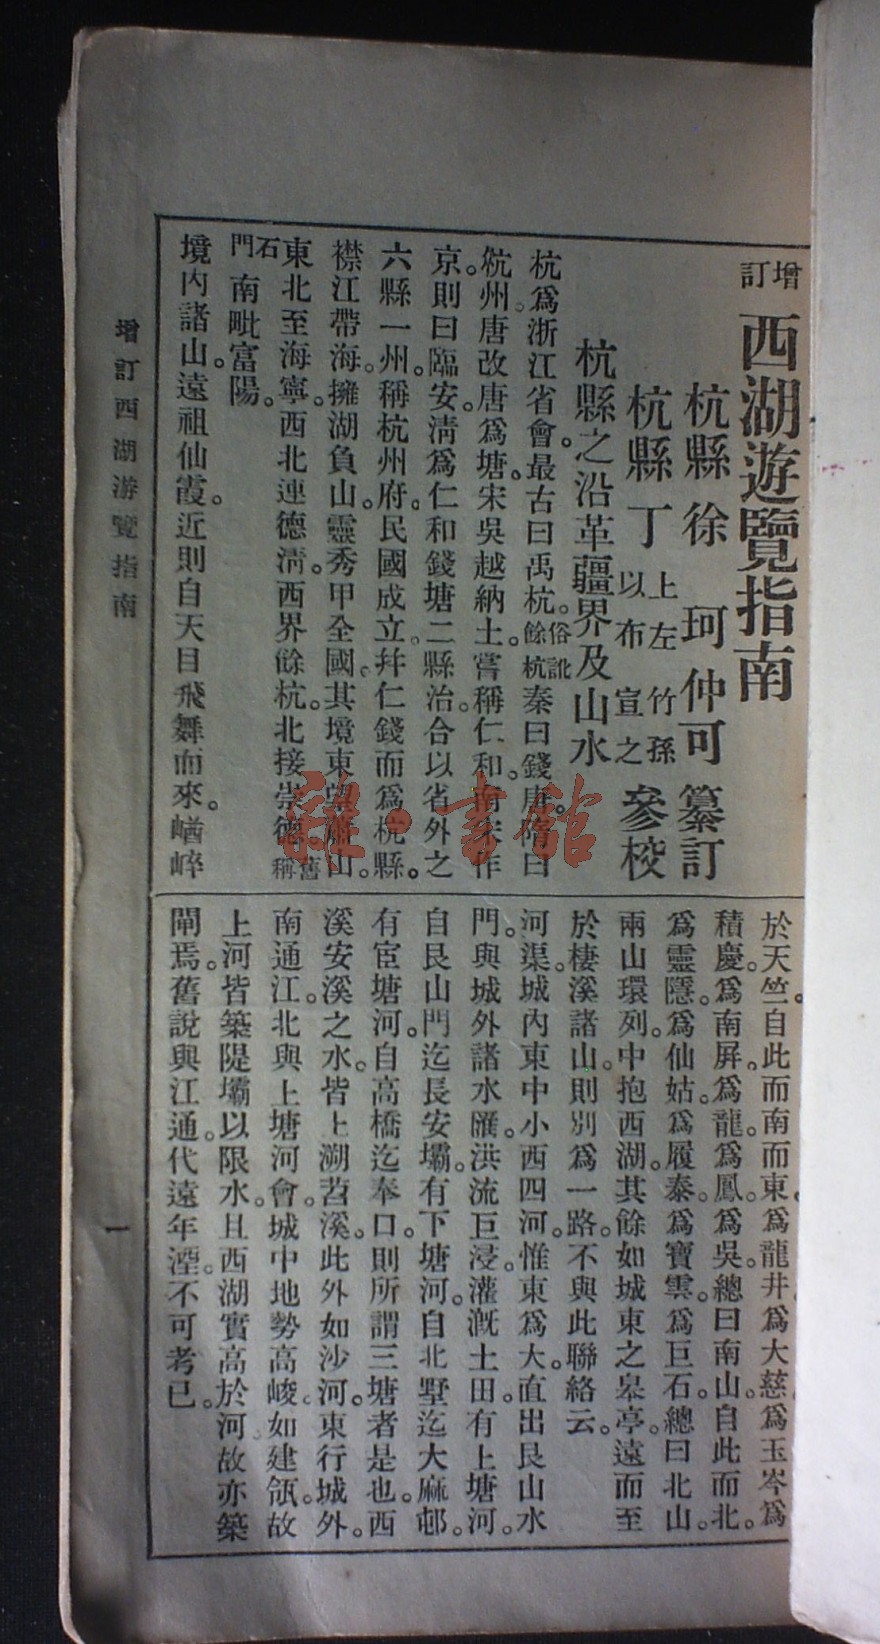 增訂西湖遊覽指南
杭縣徐珂仲可纂訂
杭縣丁上左竹孫以布宣之參校
杭縣之沿革疆界及山水
杭爲浙江省會。最古曰禹杭。俗訛餘杭秦曰錢唐。隋曰
杭州。唐改唐爲塘。宋吳越納土。嘗稱仁和。南宋作
京。則曰臨安。淸爲仁和錢塘二縣治。合以省外之
六縣一州。稱杭州府。民國成立。幷仁錢而爲杭縣。
襟江帶海。擁湖負山。靈秀甲全國。其境東望蕭山。
東北至海寧。西北連德淸。西界餘杭。北接崇德。舊稱
石門南毗富陽。
境內諸山。遠祖仙霞。近則自天目飛舞而來。崷崪
於天竺。自此而南而東。爲龍井。爲大慈。爲玉岑。爲
積慶。爲南屏。爲龍。爲鳳。爲吳。總曰南山。自此而北。
爲靈隱。爲仙姑。爲履泰。爲寶雲。爲巨石。總曰北山。
兩山環列。中抱西湖。其餘如城東之皋亭。遠而至
於棲溪諸山。則別爲一路。不與此聯絡云。
河渠。城內東中小西四河。惟東爲大。直出艮山水
門。與城外諸水匯。洪流巨浸。灌漑土田。有上塘河。
自艮山門迄長安壩。有下塘河。自北墅迄大麻邨。
有宦塘河。自高橋迄奉口。則所謂三塘者是也。西
溪安溪之水。皆上溯苕溪。此外如沙河。東行城外。
南通江。北與上塘河會。城中地勢高峻。如建瓴。故
上河皆築隄壩以限水。且西湖實高於河。故亦築
閘焉。舊說與江通。代遠年湮。不可考已。
增訂西湖游覽指南
一
雜·書館